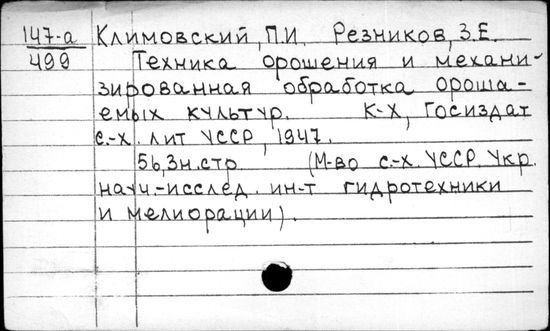 147-а Климовский, П.И. Резников, З.Е.
499 Техника орошения и механи-
зированная обработка ороша-
емых культур. К-Х, Госиздат
с.-х. лит УССР, 1947.
56, 3н.стр (М-во с.-х. УССР. Укр.
науч.-исслед. ин-т гидротехники
и мелиорации).